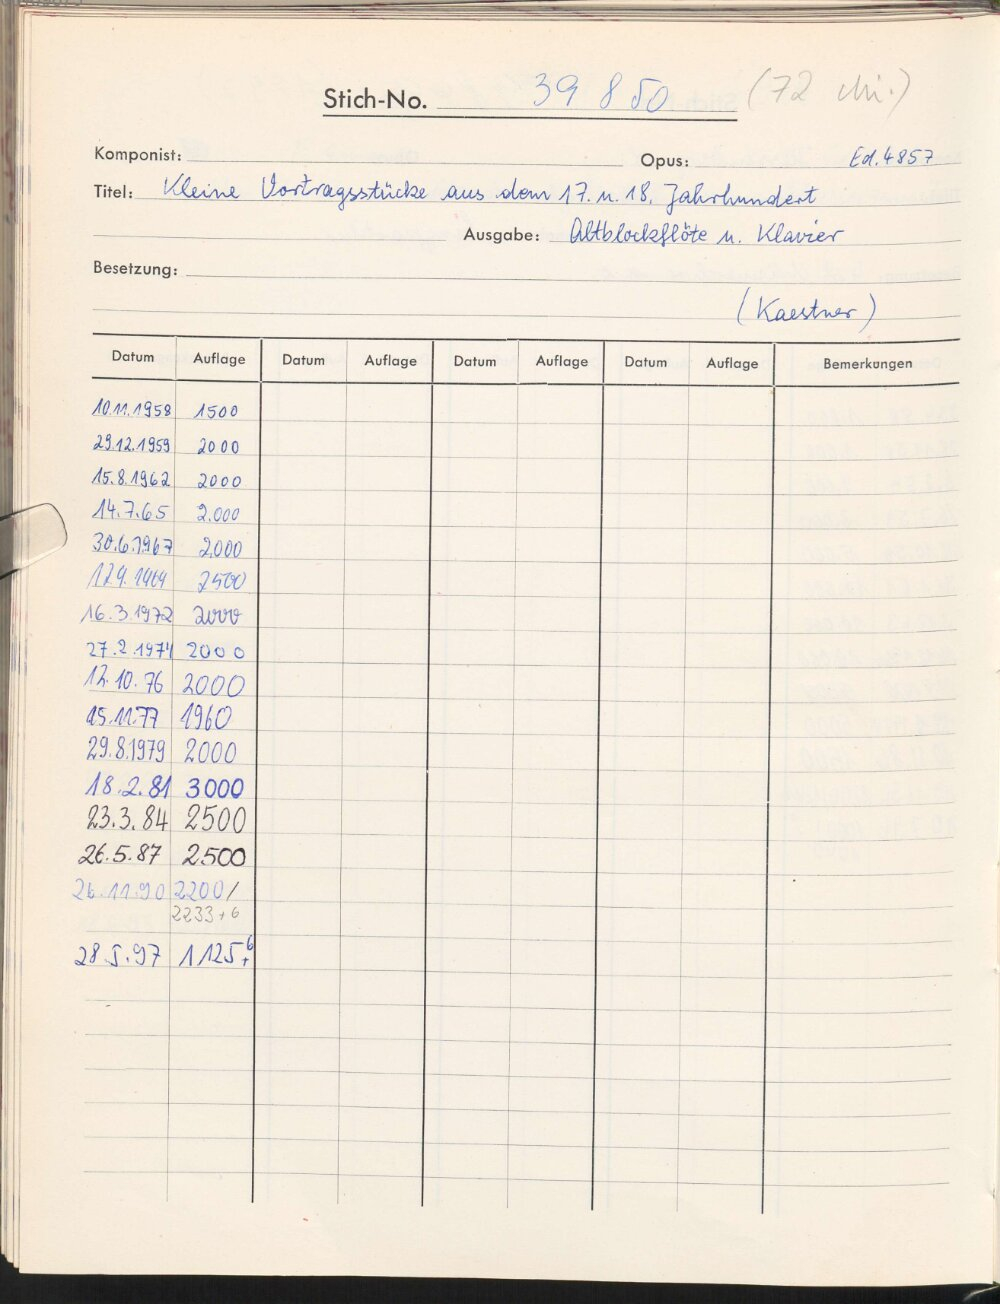 Stich-No. 39 850 (72
Komponist: Opus: Ed. 4857
Titel: Kleine Vortragsstücke aus dem 17. u. 18. Jahrhundert
Ausgabe: Altblockflöte u. Klavier
Besetzung:
(Kaestner)
Datum Auflage Datum Auflage Datum Auflage Datum Auflage Bemerkungen
10.11.1958 1500
29.12.1959 2000
15.8.1962 2000
14.7.65 2.000
30.6.1967 2000
12.9.1969 2500
16.3.1972 2000
27.2.1974 2000
12.10.76 2000
15.11.77 1960
29.8.1979 2000
18.2.81 3000
23.3.84 2500
26.5.87 2500
26.11.90 2200/
2233+6
28.5.97 1125+6